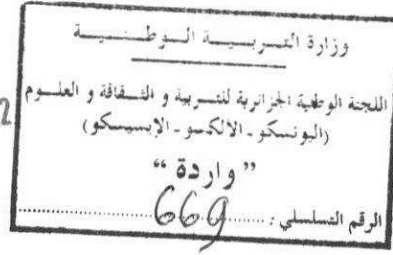 وزارة التربية الوطنية
اللجنة الوطنية الجزائرية للتربية و الثقافة و العلوم
(اليونسكو - الالكسو - الإيسيسكو)
" واردة "
الرقم التسلسلي : 669
2